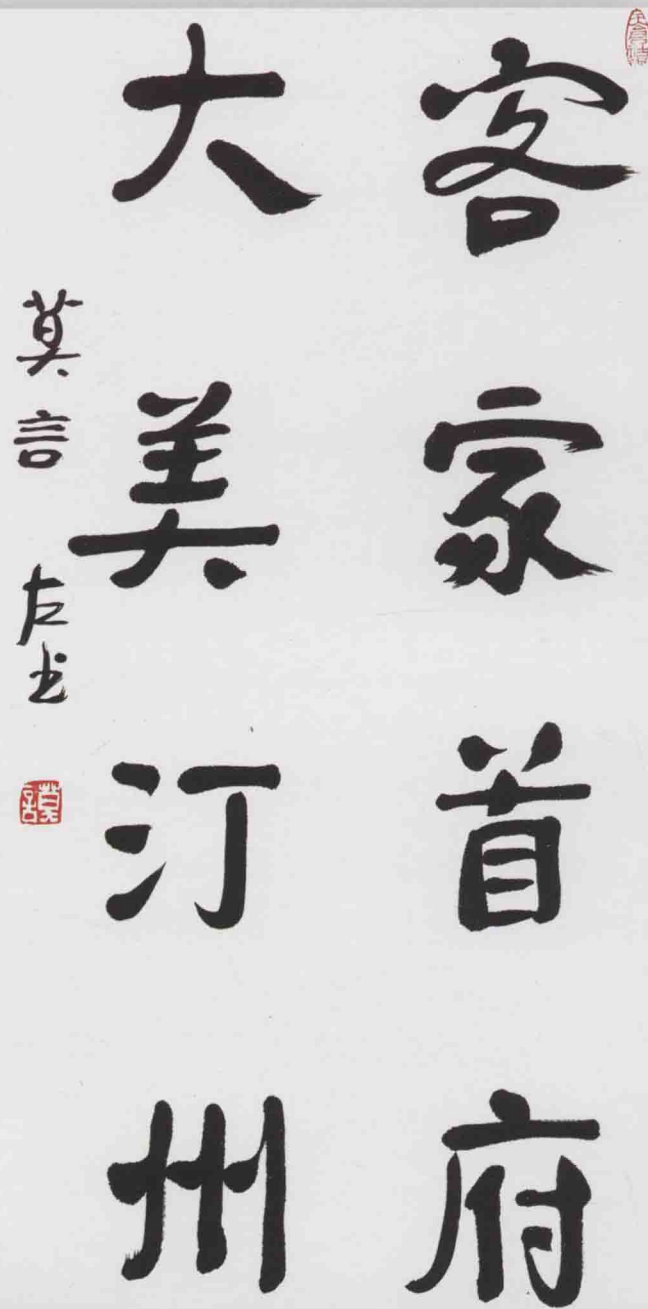 客家首府
大美汀州
莫言 左书
莫言